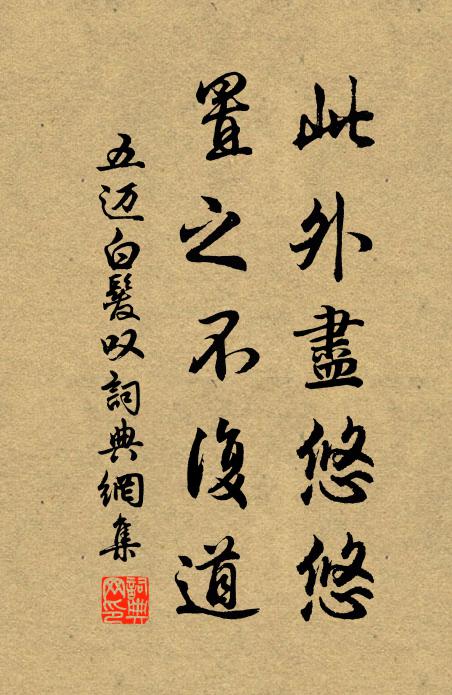 此外盡悠悠
置之不復道
五迈白髮叹詞典網集
詞典网印